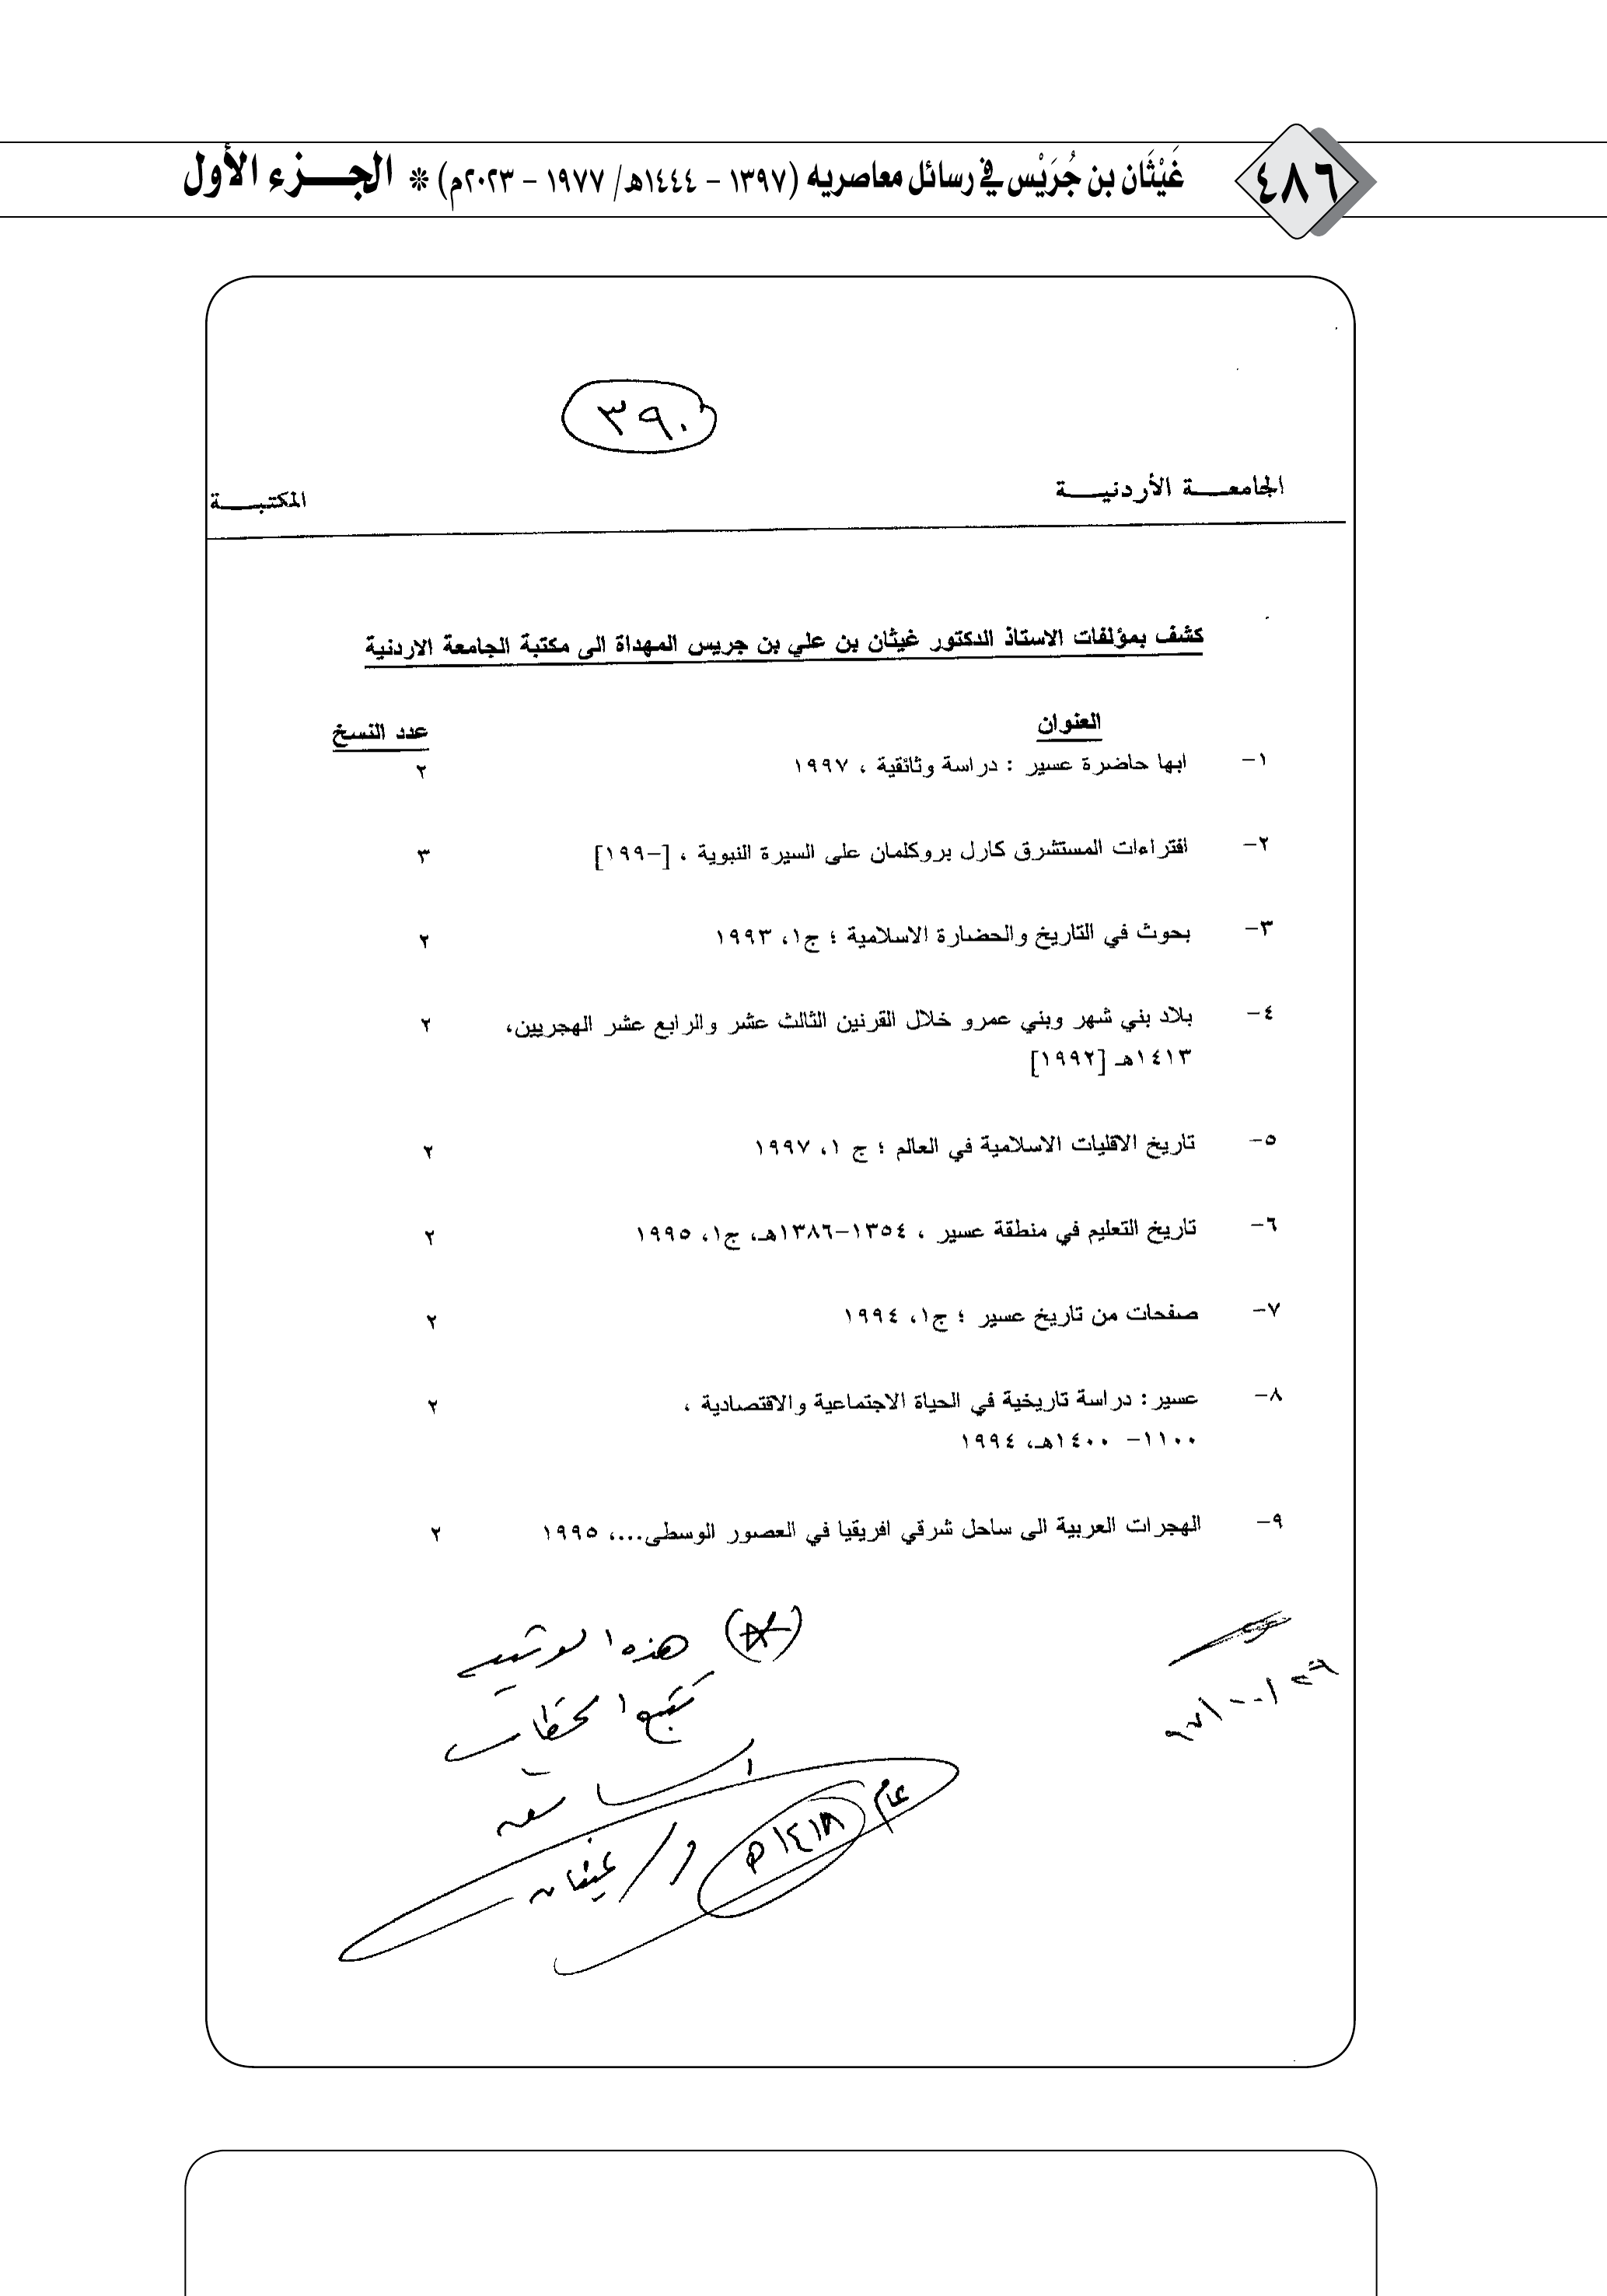 ٤٨٦
غَيْثَان بن جُرَيْس في رسائل معاصريه (١٣٩٧ - ١٤٤٤هـ/ ١٩٧٧ - ٢٠٢٣م) * الجـــزء الأول
٣٩٠
الجامعـــة الأردنيـــة
المكتبـــة
كشف بمؤلفات الاستاذ الدكتور غيثان بن علي بن جريس المهداة الى مكتبة الجامعة الاردنية
العنوان عدد النسخ
١- ابها حاضرة عسير : دراسة وثائقية ، ١٩٩٧ ٢
٢- افتراءات المستشرق كارل بروكلمان على السيرة النبوية ، [-١٩٩] ٣
٣- بحوث في التاريخ والحضارة الاسلامية ؛ ج١، ١٩٩٣ ٢
٤- بلاد بني شهر وبني عمرو خلال القرنين الثالث عشر والرابع عشر الهجريين، ٢
١٤١٣هـ [١٩٩٢]
٥- تاريخ الاقليات الاسلامية في العالم ؛ ج ١، ١٩٩٧ ٢
٦- تاريخ التعليم في منطقة عسير ، ١٣٥٤-١٣٨٦هـ، ج١، ١٩٩٥ ٢
٧- صفحات من تاريخ عسير ؛ ج١، ١٩٩٤ ٢
٨- عسير: دراسة تاريخية في الحياة الاجتماعية والاقتصادية ، ٢
١١٠٠- ١٤٠٠هـ، ١٩٩٤
٩- الهجرات العربية الى ساحل شرقي افريقيا في العصور الوسطى...، ١٩٩٥ ٢
هذه الوثيقة
تتبع الخطاب
السابق
عام ١٤١٨هـ
د/ غيثان